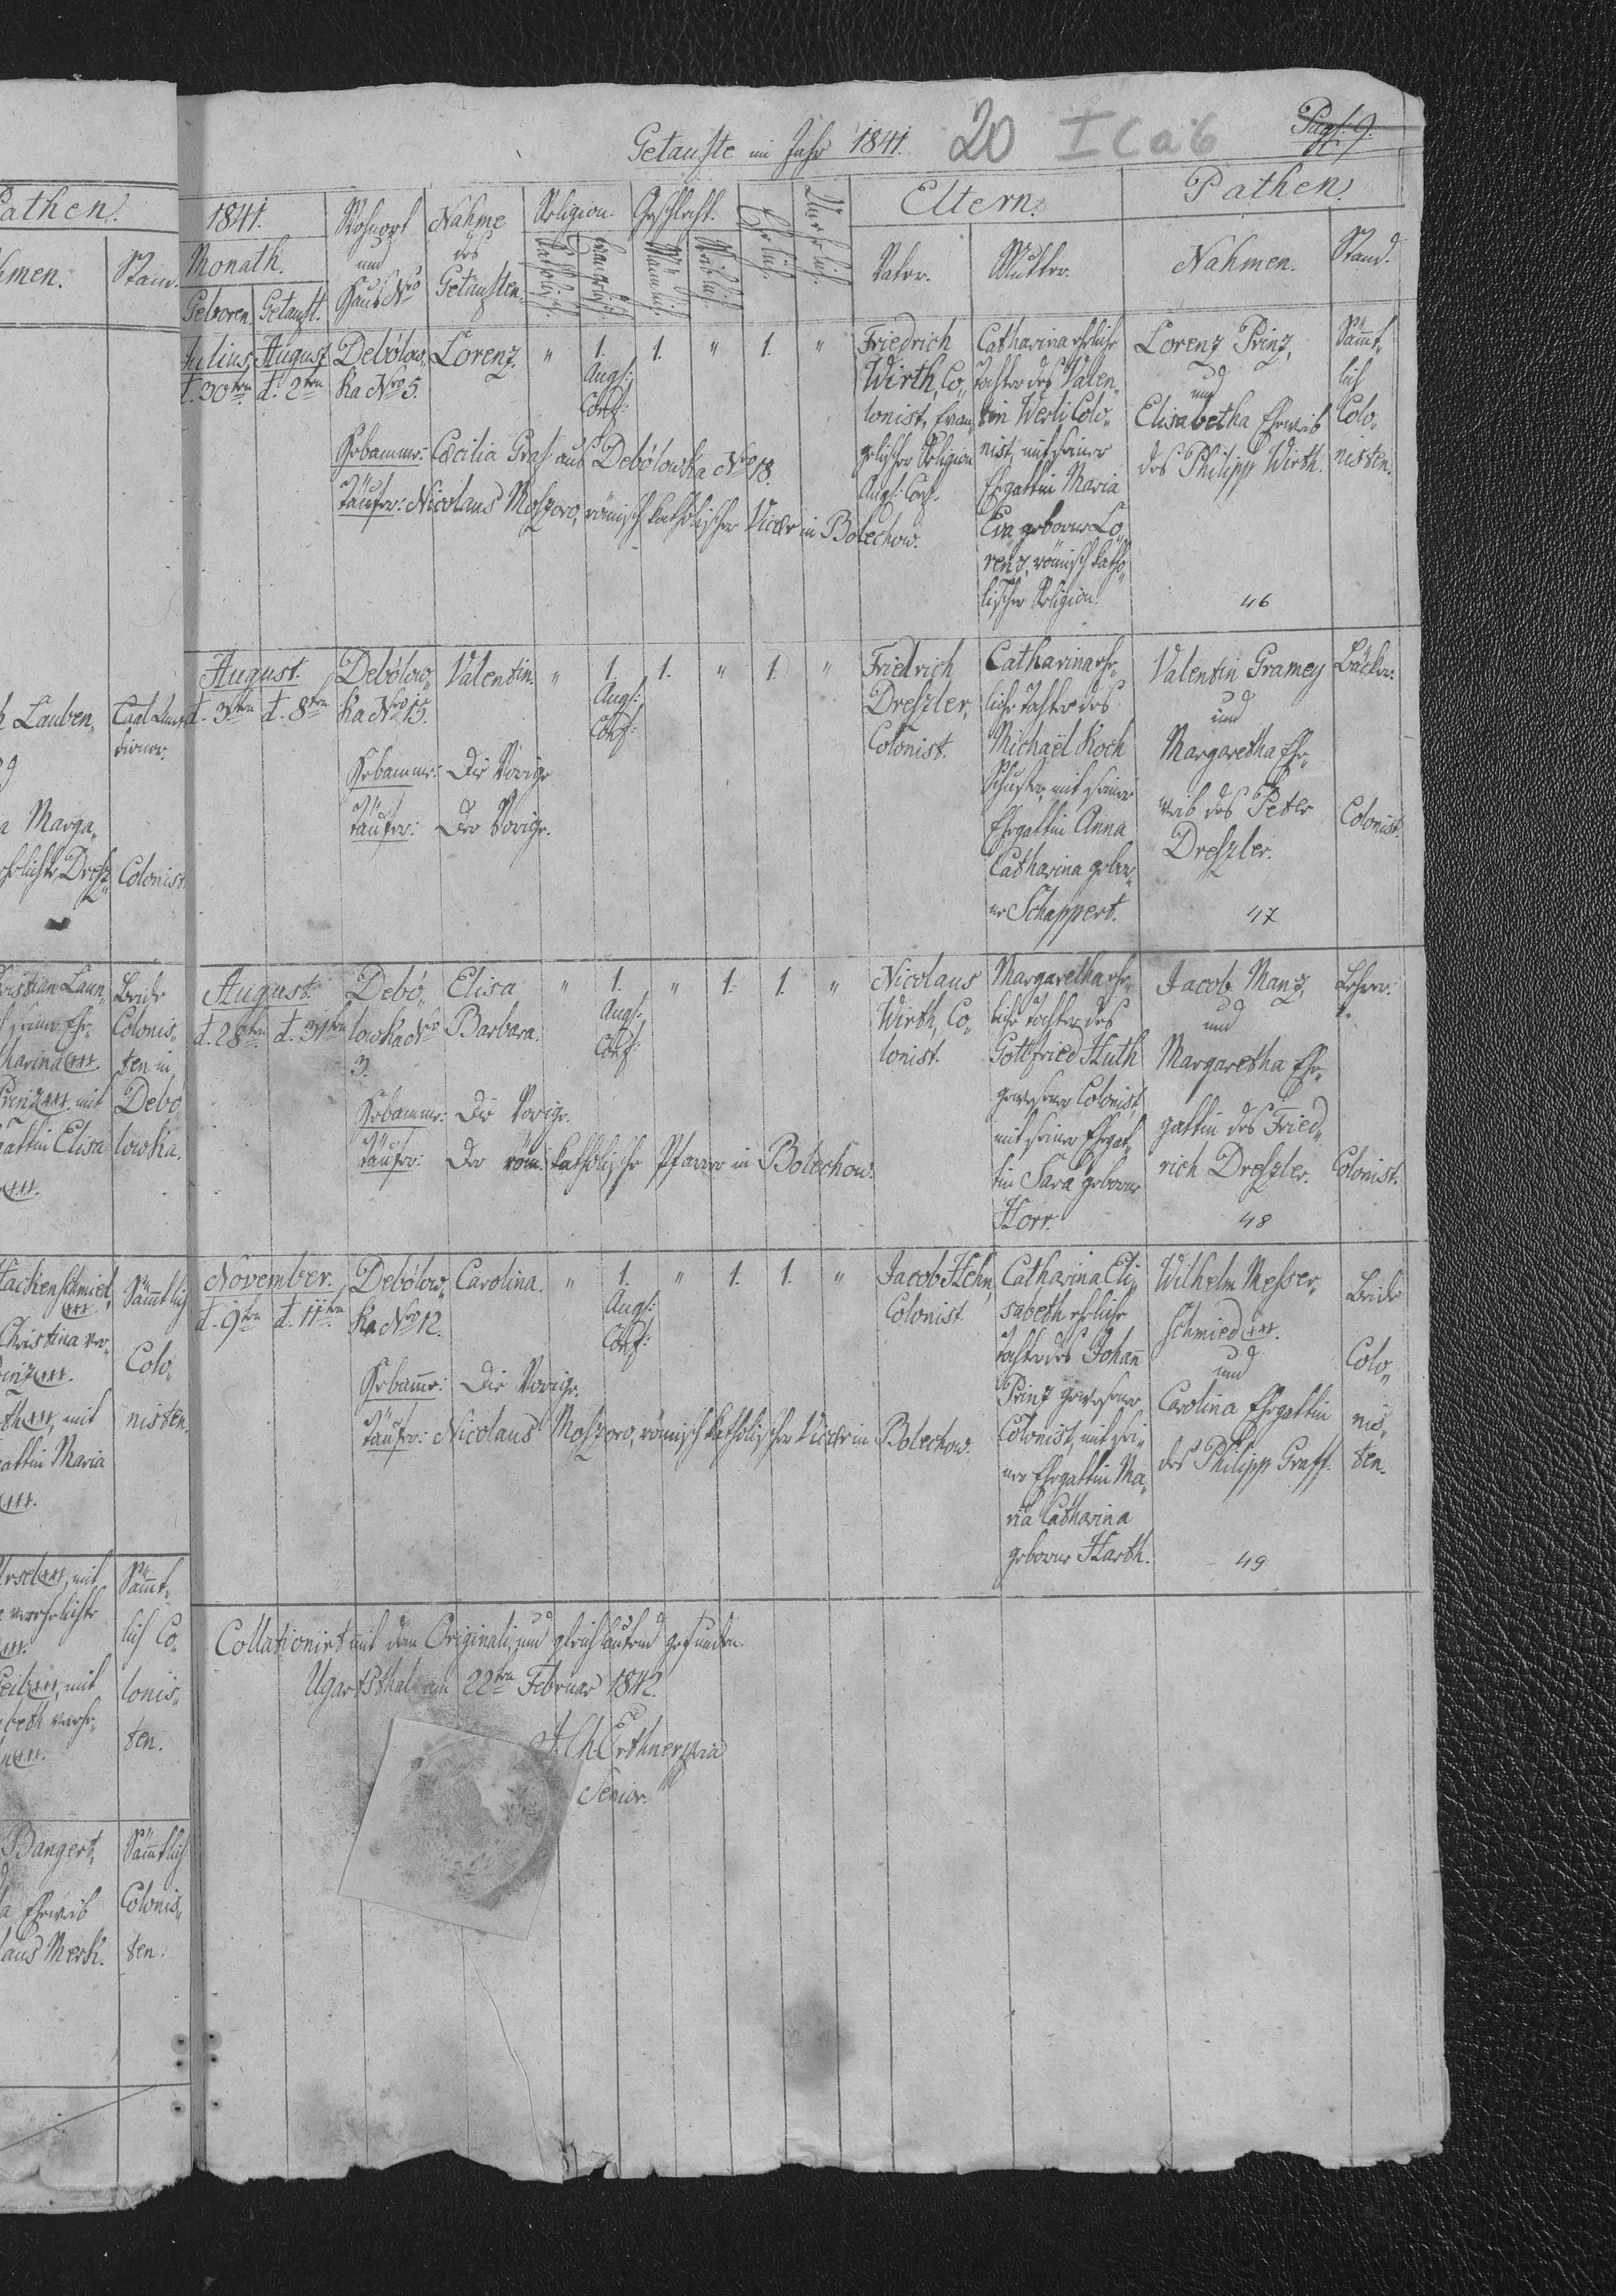 Getaufte im Jahr 1841.
20 I C a 6
Pag: 9.
1841.
Monath.
Geboren. Getauft.
Wohnort
und
Haus Nro
Nahme
des
Getauften.
Religion.
Katholisch.
Evangelisch.
Geschlecht.
Männlich.
Weiblich.
Ehelich.
Unehelich.
Eltern.
Vater.
Mutter.
Pathen.
Nahmen.
Stand.
Julius, August
d. 30ten d. 2ten
Debólow„
ka Nro 5.
Lorenz.
„ 1. 1. „ 1. „
Augs:
Conf:
Friedrich
Wirth, Co„
lonist, Evan„
gelischer Religion
Augs: Conf.
Catharina eheliche
Tochter des Valen„
tin Werli Colo„
nist, mit seiner
Ehgattin Maria
Eva geborne Lo„
renz, römisch katho„
lischer Religion.
Lorenz Prinz,
und
Elisabetha Eheweib
des Philipp Wirth.
46
Sämt„
lich
Colo„
nisten.
Hebamme: Cäcilia Graf aus Debólowka Nro 18.
Täufer: Nicolaus Moszoro, römisch katholischer Vicär in Bolechow.
August.
d. 3ten d. 8ten
Debólow„
ka Nro 15.
Valentin.
„ 1. 1. „ 1. „
Augs:
Conf:
Friedrich
Dreszler,
Colonist.
Catharina ehe„
liche Tochter des
Michaël Koch
Schuster, mit seiner
Ehegattin Anna
Catharina gebor„
ne Schappert.
Valentin Gramey
und
Margaretha Ehe„
weib des Peter
Dreszler.
47
Bäcker.
Colonist.
Hebamme: Die Vorige
Täufer: Der Vorige.
August.
d. 28ten d. 31ten
Debó„
lowka Nro
3.
Elisa
Barbara.
„ 1. „ 1. 1. „
Augs:
Conf:
Nicolaus
Wirth, Co„
lonist.
Margaretha ehe„
liche Tochter des
Gottfried Huth
gewesener Colonist,
mit seiner Ehegat„
tin Sara geborne
Horr.
Jacob Manz,
und
Margaretha Ehe„
gattin des Fried„
rich Dreszler.
48
Lehrer.
Colonist.
Hebamme: Die Vorige.
Täufer: Der röm: katholische Pfarrer in Bolechow.
November.
d. 9ten d. 11ten
Debólow„
ka Nro 12.
Carolina.
„ 1. „ 1. 1. „
Augs:
Conf:
Jacob Hehn,
Colonist.
Catharina Eli„
sabeth eheliche
Tochter des Johañ
Prinz gewesener
Colonist, mit sei„
ner Ehegattin Ma„
ria Catharina
geborne Harth.
Wilhelm Messer„
schmied +++.
und
Carolina Ehegattin
des Philipp Graff.
49
Beide
Colo„
nis„
ten.
Hebame: Die Vorige.
Täufer: Nicolaus Moszoro, römisch katholischer Vicär in Bolechow.
Collationirt mit dem Originali, und gleichlautend gefunden.
Ugartsthal am 22ten Februar 1842.
Senior.
Pathen.
Stand.
Lauben„
Marga„
Colonist.
Beide
Colonis„
ten in
Debó„
lowka.
Prinz+++. mit
Ehgattin Elisa
Hackenschmied,
Sämtlich
Christina
Colo„
nisten.
Maria
Sämt„
lich Co„
lonis„
ten.
Bangert,
Sämtlich
Eheweib
Colonis„
Merk.
ten.